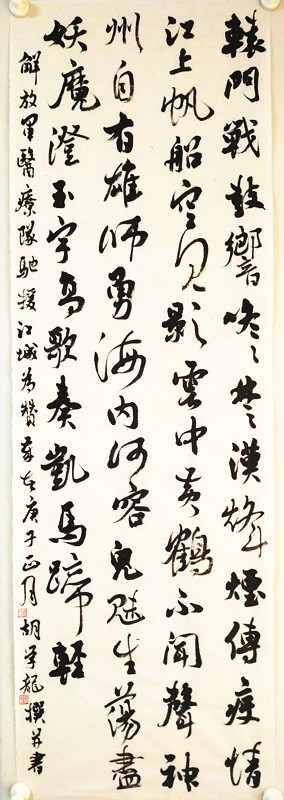 轅門戰鼓響咚々楚漢烽煙傳疫情
江上帆船空見影雲中黃鶴不聞聲神
州自有雄師勇海内何容鬼魅生蕩盡
妖魔澄玉宇高歌奏凱馬蹄輕
解放軍醫療隊馳援江城為贊歲在庚子正月胡学龍撰并書